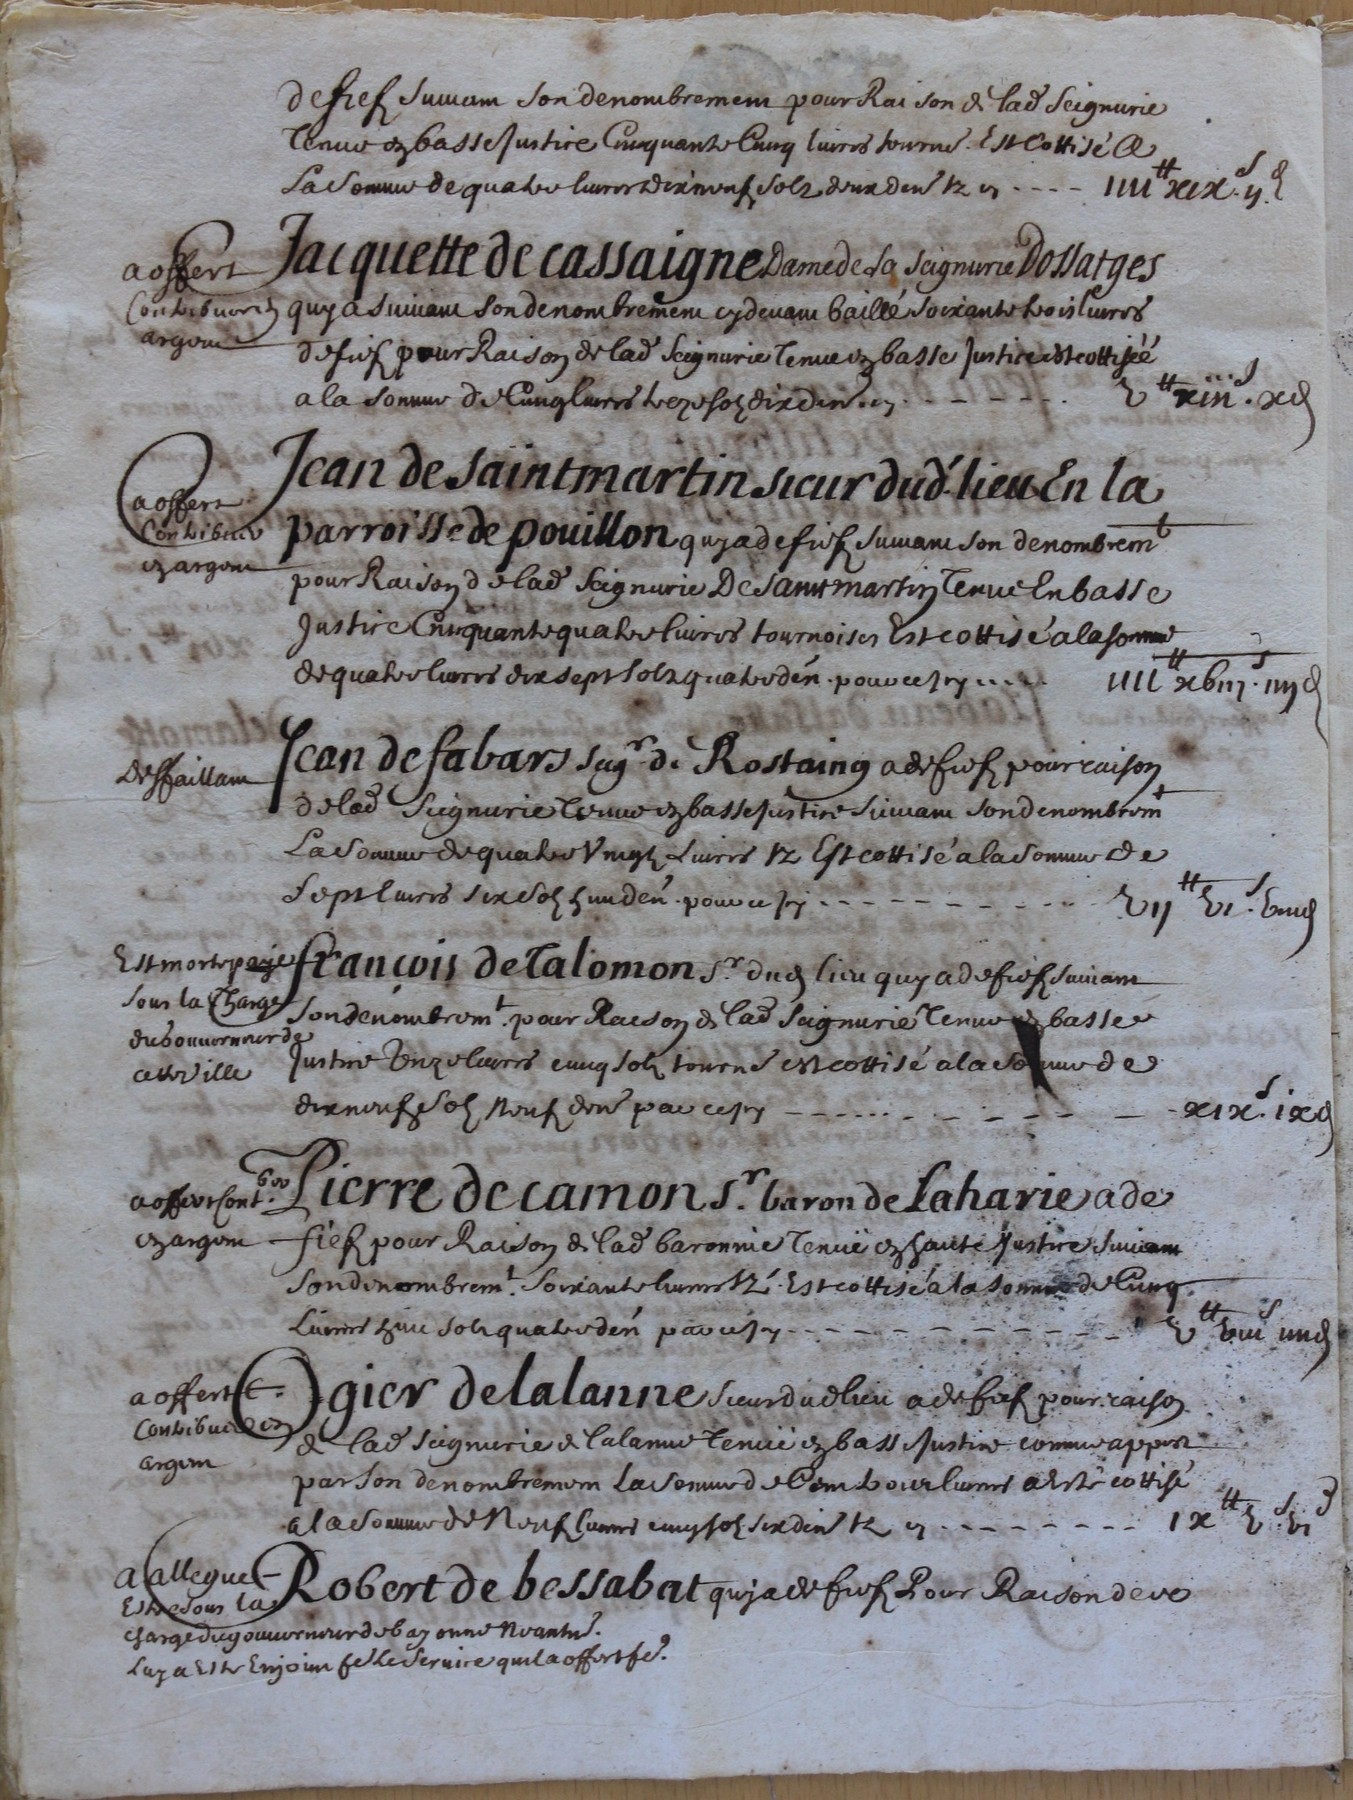 de fief suivant son denombrement pour Raison de lad Seignurie
Tenue en basse Justice Cinquante Cinq livres tourns. Est Cottisé A
La Somme de quatre livres dix neuf solz deux den tz cy ---- IIII ͭͭ xıx s ij d
Jacquette de cassaigne Dame de La Seignurie Dossatges
a offert
Contribuer en
argent
quy a suivant son denombrement cy devant baillé soixante trois livres
de fief pour Raison de lad Seignurie Tenue en basse Justice est cottisée
a la somme de Cinq livres treze solz dix den cy - - - - - - V tt xiii s x d
Jean de saintmartin sieur dud. lieu En la
a offert
Contribuer
en argent
parroisse de pouillon quy a de fief suivant son denombremt
pour Raison de lad Seignurie De saintmartin Tenue En basse
Justice Cinquante quatre livres tournoises Est cottisé a la somme
de quatre livres dix sept solz quatre den. pour cecy ..... IIII tt xbii s iiij d
Jean de fabars seigr de Rostaing a de fief pour raison
Deffaillant
de lad Seignurie Tenue en basse Justice suivant son denombremt
La somme de quatre Vingtz Livres tz Est cottisé a la somme de
Sept livres six solz huit den. pour cecy - - - - - - - VII tt VI s Viii d
françois de Talomon sr. dud lieu quy a de fief suivant
Est mortepaye
sous la Charge
du Gouverneur de
cette Ville
son denombremt. pour Raison de lad Seignurie Tenue en basse
Justice Unze livres cinq solz tourns est cottisé a la somme de
dix neuf solz Neuf den pour cecy - - - - - - - xıx s ix d
Pierre de camon sr. baron de Laharie a de
a offert contber
en argent
fief pour Raison de lad baronnie Tenue en haute Justice suivant
son denombremt. soixante livres tz. Est cottisé a la somme de Cinq
Livres huit solz quatre den pour cecy - - - - - - - V tt Viii s iiii d
Ogier de lalanne sieur dud lieu a de fief pour raison
a offert
Contribuer en
argent
de lad Seignurie de lalanne Tenue en basse Justice comme appert
par son denombrement La somme de Cent trois livres a esté cottisé
a la somme de Neuf livres cinq solz six den tz cy - - - - - - IX tt V s VI d
Robert de bessabat quy a de fief Pour Raison de
a allegué
Estre sous la
charge du gouverneur de bayonne Neantms.
Luy a Esté Enjoint fe Le Service quil a offert fe.